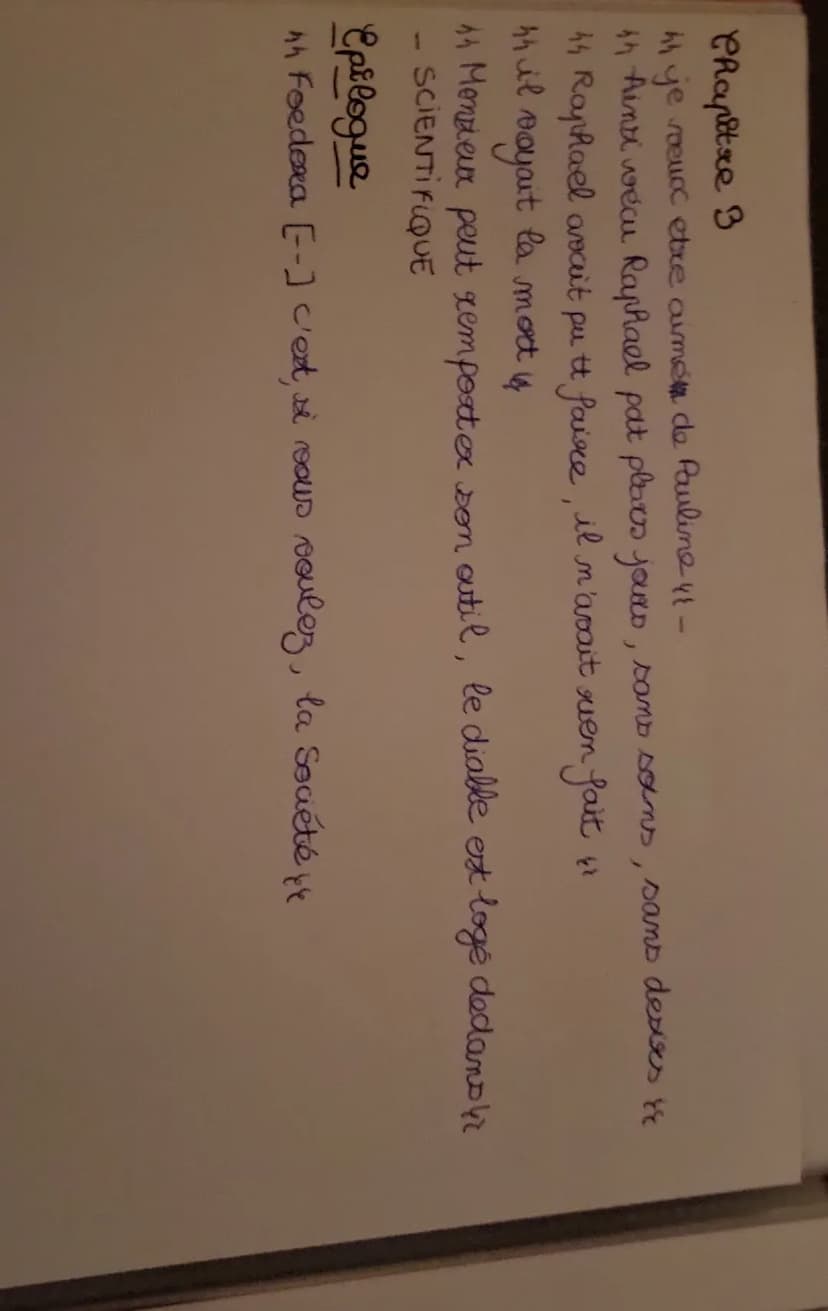 Chapitre 3
" je veux etre aimé de Pauline " -
" Ainsi vécu Raphael pdt plsrs jours, sans soins, sans desirs "
" Raphael avait pu tt faire, il n'avait rien fait "
" il voyait la mort "
" Monsieur peut remporter son outil, le diable est logé dedans "
- SCIENTIFIQUE
Epilogue
" Foedora [--] c'est, si vous voulez, la Société "